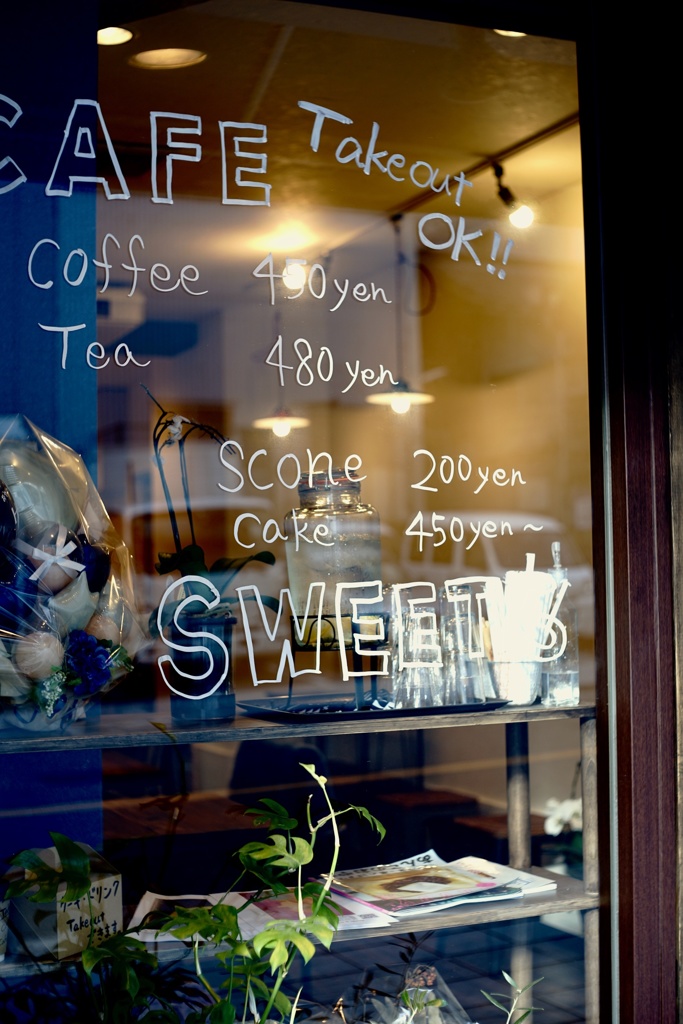 CAFE
Takeout
OK!!
Coffee 450yen
Tea 480yen
Scone 200yen
Cake 450yen~
SWEETS
ケーキ・ドリンク
Takeout
できます